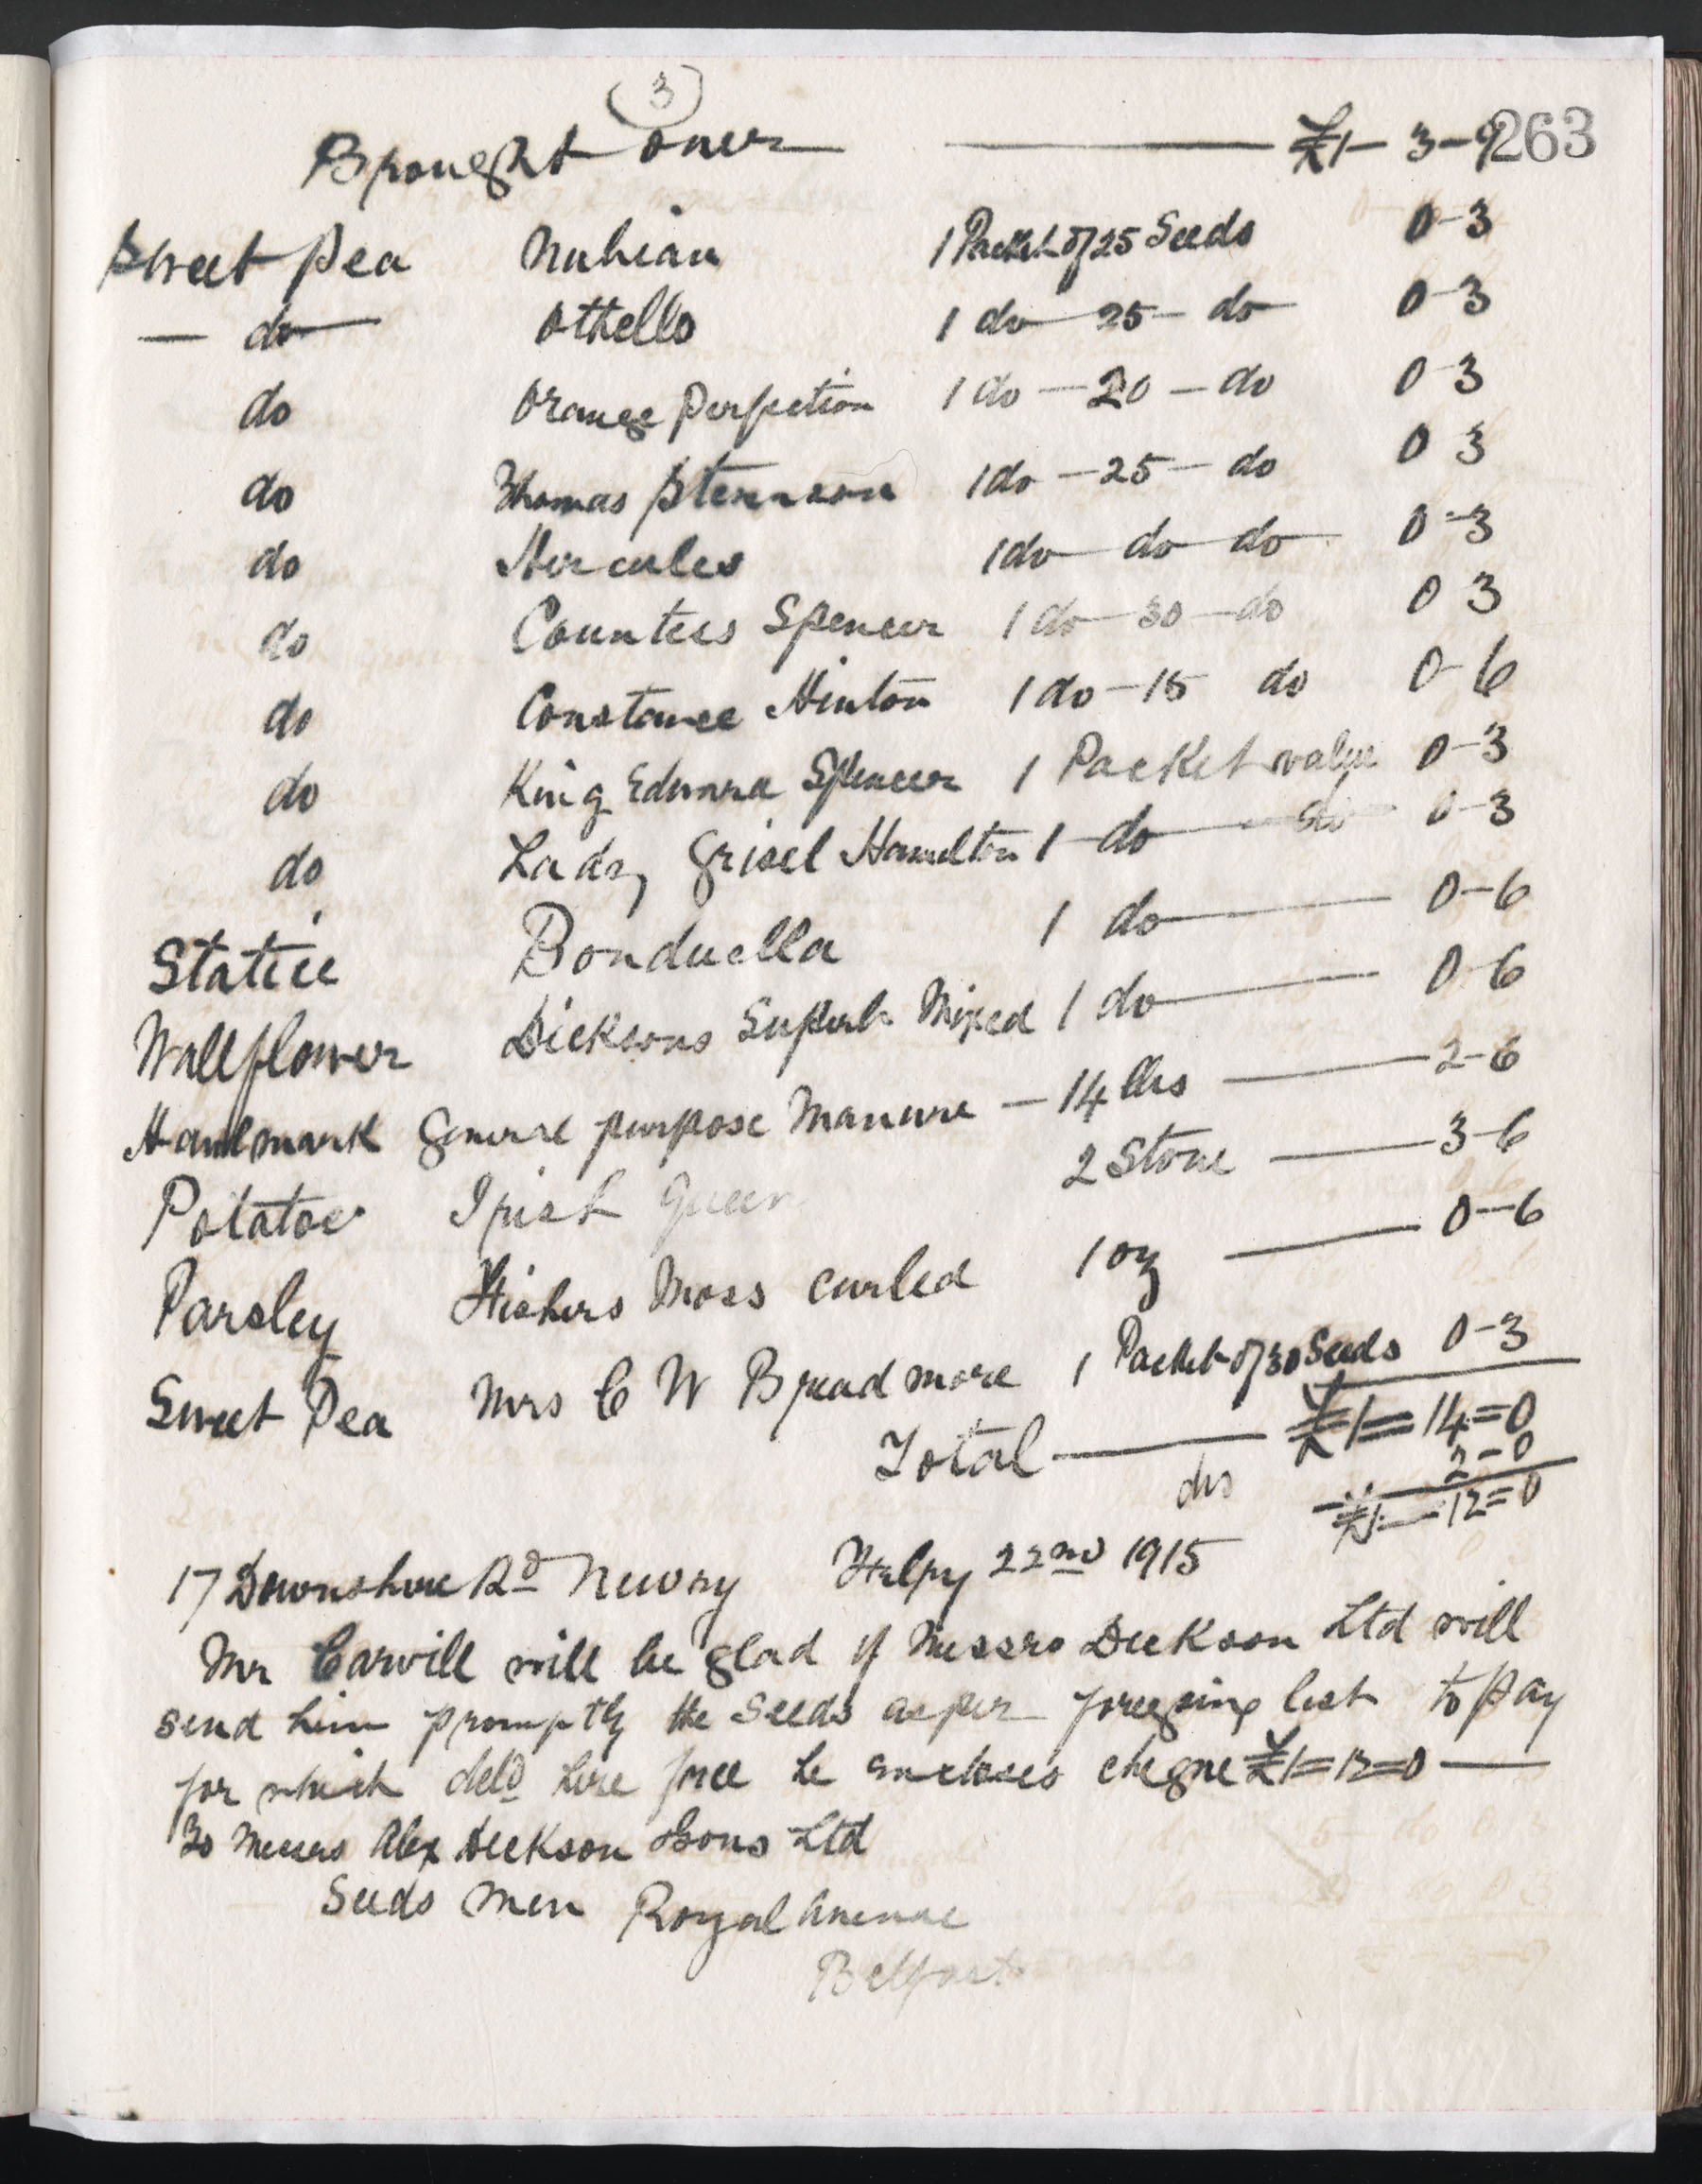 (3)
Brought over £1-3-9 263
Sweet Pea Nubian 1 Packet of 25 Seeds 0-3
— do Othello 1 do 25 - do 0-3
do Orange Perfection 1 do - 20 - do 0 3
do Thomas Stevenson 1 do - 25 - do 0 3
do Hercules 1 do do do 0-3
do Countess Spencer 1 do 30 do 0 3
do Constance Hinton 1 do - 15 do 0-6
do King Edward Spencer 1 Packet value 0-3
do Lady Grisel Hamilton 1 do do 0-3
Statice Bonduella 1 do 0-6
Wallflower Dicksons Superb Mixed 1 do 0-6
Hawlmark General purpose Manure - 14 lbs 2-6
Potatoe Irish Queen 2 Stone 3-6
Parsley Moss Curled 1 oz 0-6
Sweet Pea Mrs C W Breadmore 1 Packet of 30 Seeds 0-3
Total £1=14=0
dis 2-0
£1-12=0
17 Downshire Rd Newry 22nd 1915
Mr Carvill will be glad if Messrs Dickson Ltd will
send him promptly the Seeds as per foregoing list to pay
for which deld here free he encloses cheque £1=12=0
To Messrs Alex Dickson & Sons Ltd
Seeds Men Royal Avenue
Belfast